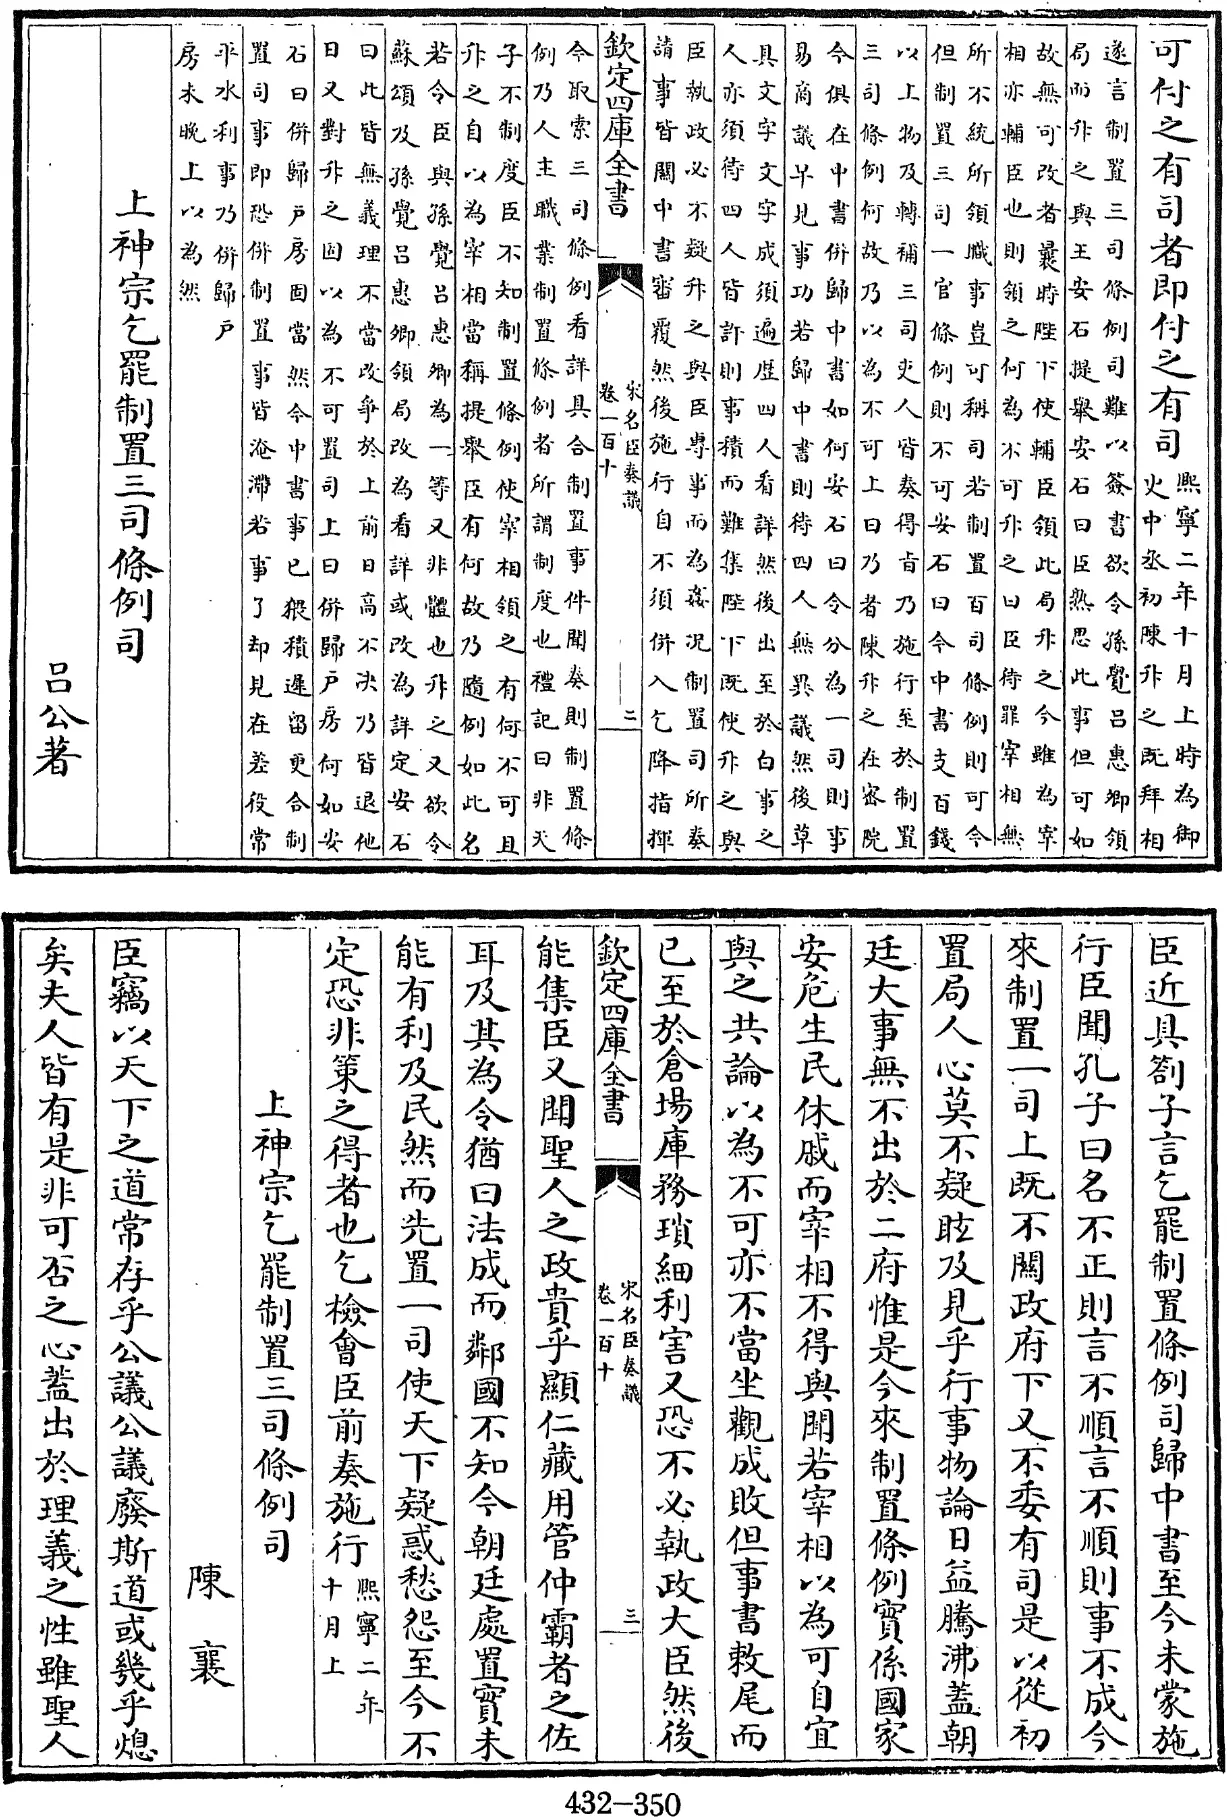 可付之有司者即付之有司熙寧二年十月上時為御
史中丞初陳升之既拜相
遂言制置三司條例司難以簽書欲令孫覺呂惠卿領
局而升之與王安石提舉安石曰臣熟思此事但可如
故無可改者曩時陛下使輔臣領此局升之今雖為宰
相亦輔臣也則領之何為不可升之曰臣待罪宰相無
所不統所領職事豈可稱司若制置百司條例則可今
但制置三司一官條例則不可安石曰今中書支百錢
以上物及轉補三司吏人皆奏得旨乃施行至於制置
三司條例何故乃以為不可上曰乃者陳升之在密院
今俱在中書併歸中書如何安石曰今分為一司則事
易商議早見事功若歸中書則待四人無異議然後草
具文字文字成須遍歷四人看詳然後出至於白事之
人亦須待四人皆許則事積而難集陛下既使升之與
臣執政必不疑升之與臣專事而為姦况制置司所奏
請事皆關中書審覆然後施行自不須併入乞降指揮
欽定四庫全書
宋名臣奏議
卷一百十
三
今取索三司條例看詳具合制置事件聞奏則制置條
例乃人主職業制置條例者所謂制度也禮記曰非天
子不制度臣不知制置條例使宰相領之有何不可且
升之自以為宰相當稱提舉臣有何故乃隨例如此名
若令臣與孫覺呂惠卿為一等又非體也升之又欲令
蘇頌及孫覺呂惠卿領局改為看詳或改為詳定安石
曰此皆無義理不當改爭於上前日高不决乃皆退他
日又對升之固以為不可置司上曰併歸戶房何如安
石曰併歸戶房固當然今中書事已猥積遲留更合制
置司事即恐併制置事皆淹滯若事了却見在差役常
平水利事乃併歸戶
房未晚上以為然
上神宗乞罷制置三司條例司
呂公著
臣近具劄子言乞罷制置條例司歸中書至今未蒙施
行臣聞孔子曰名不正則言不順言不順則事不成今
來制置一司上既不關政府下又不委有司是以從初
置局人心莫不疑眩及見乎行事物論日益騰沸蓋朝
廷大事無不出於二府惟是今來制置條例實係國家
安危生民休戚而宰相不得與聞若宰相以為可自宜
與之共論以為不可亦不當坐觀成敗但事書敕尾而
已至於倉場庫務瑣細利害又恐不必執政大臣然後
欽定四庫全書
宋名臣奏議
卷一百十
三
能集臣又聞聖人之政貴乎顯仁藏用管仲霸者之佐
耳及其為令猶曰法成而鄰國不知今朝廷處置實未
能有利及民然而先置一司使天下疑惑愁怨至今不
定恐非策之得者也乞檢會臣前奏施行熙寧二年
十月上
上神宗乞罷制置三司條例司
陳襄
臣竊以天下之道常存乎公議公議廢斯道或幾乎熄
矣夫人皆有是非可否之心蓋出於理義之性雖聖人
432-350